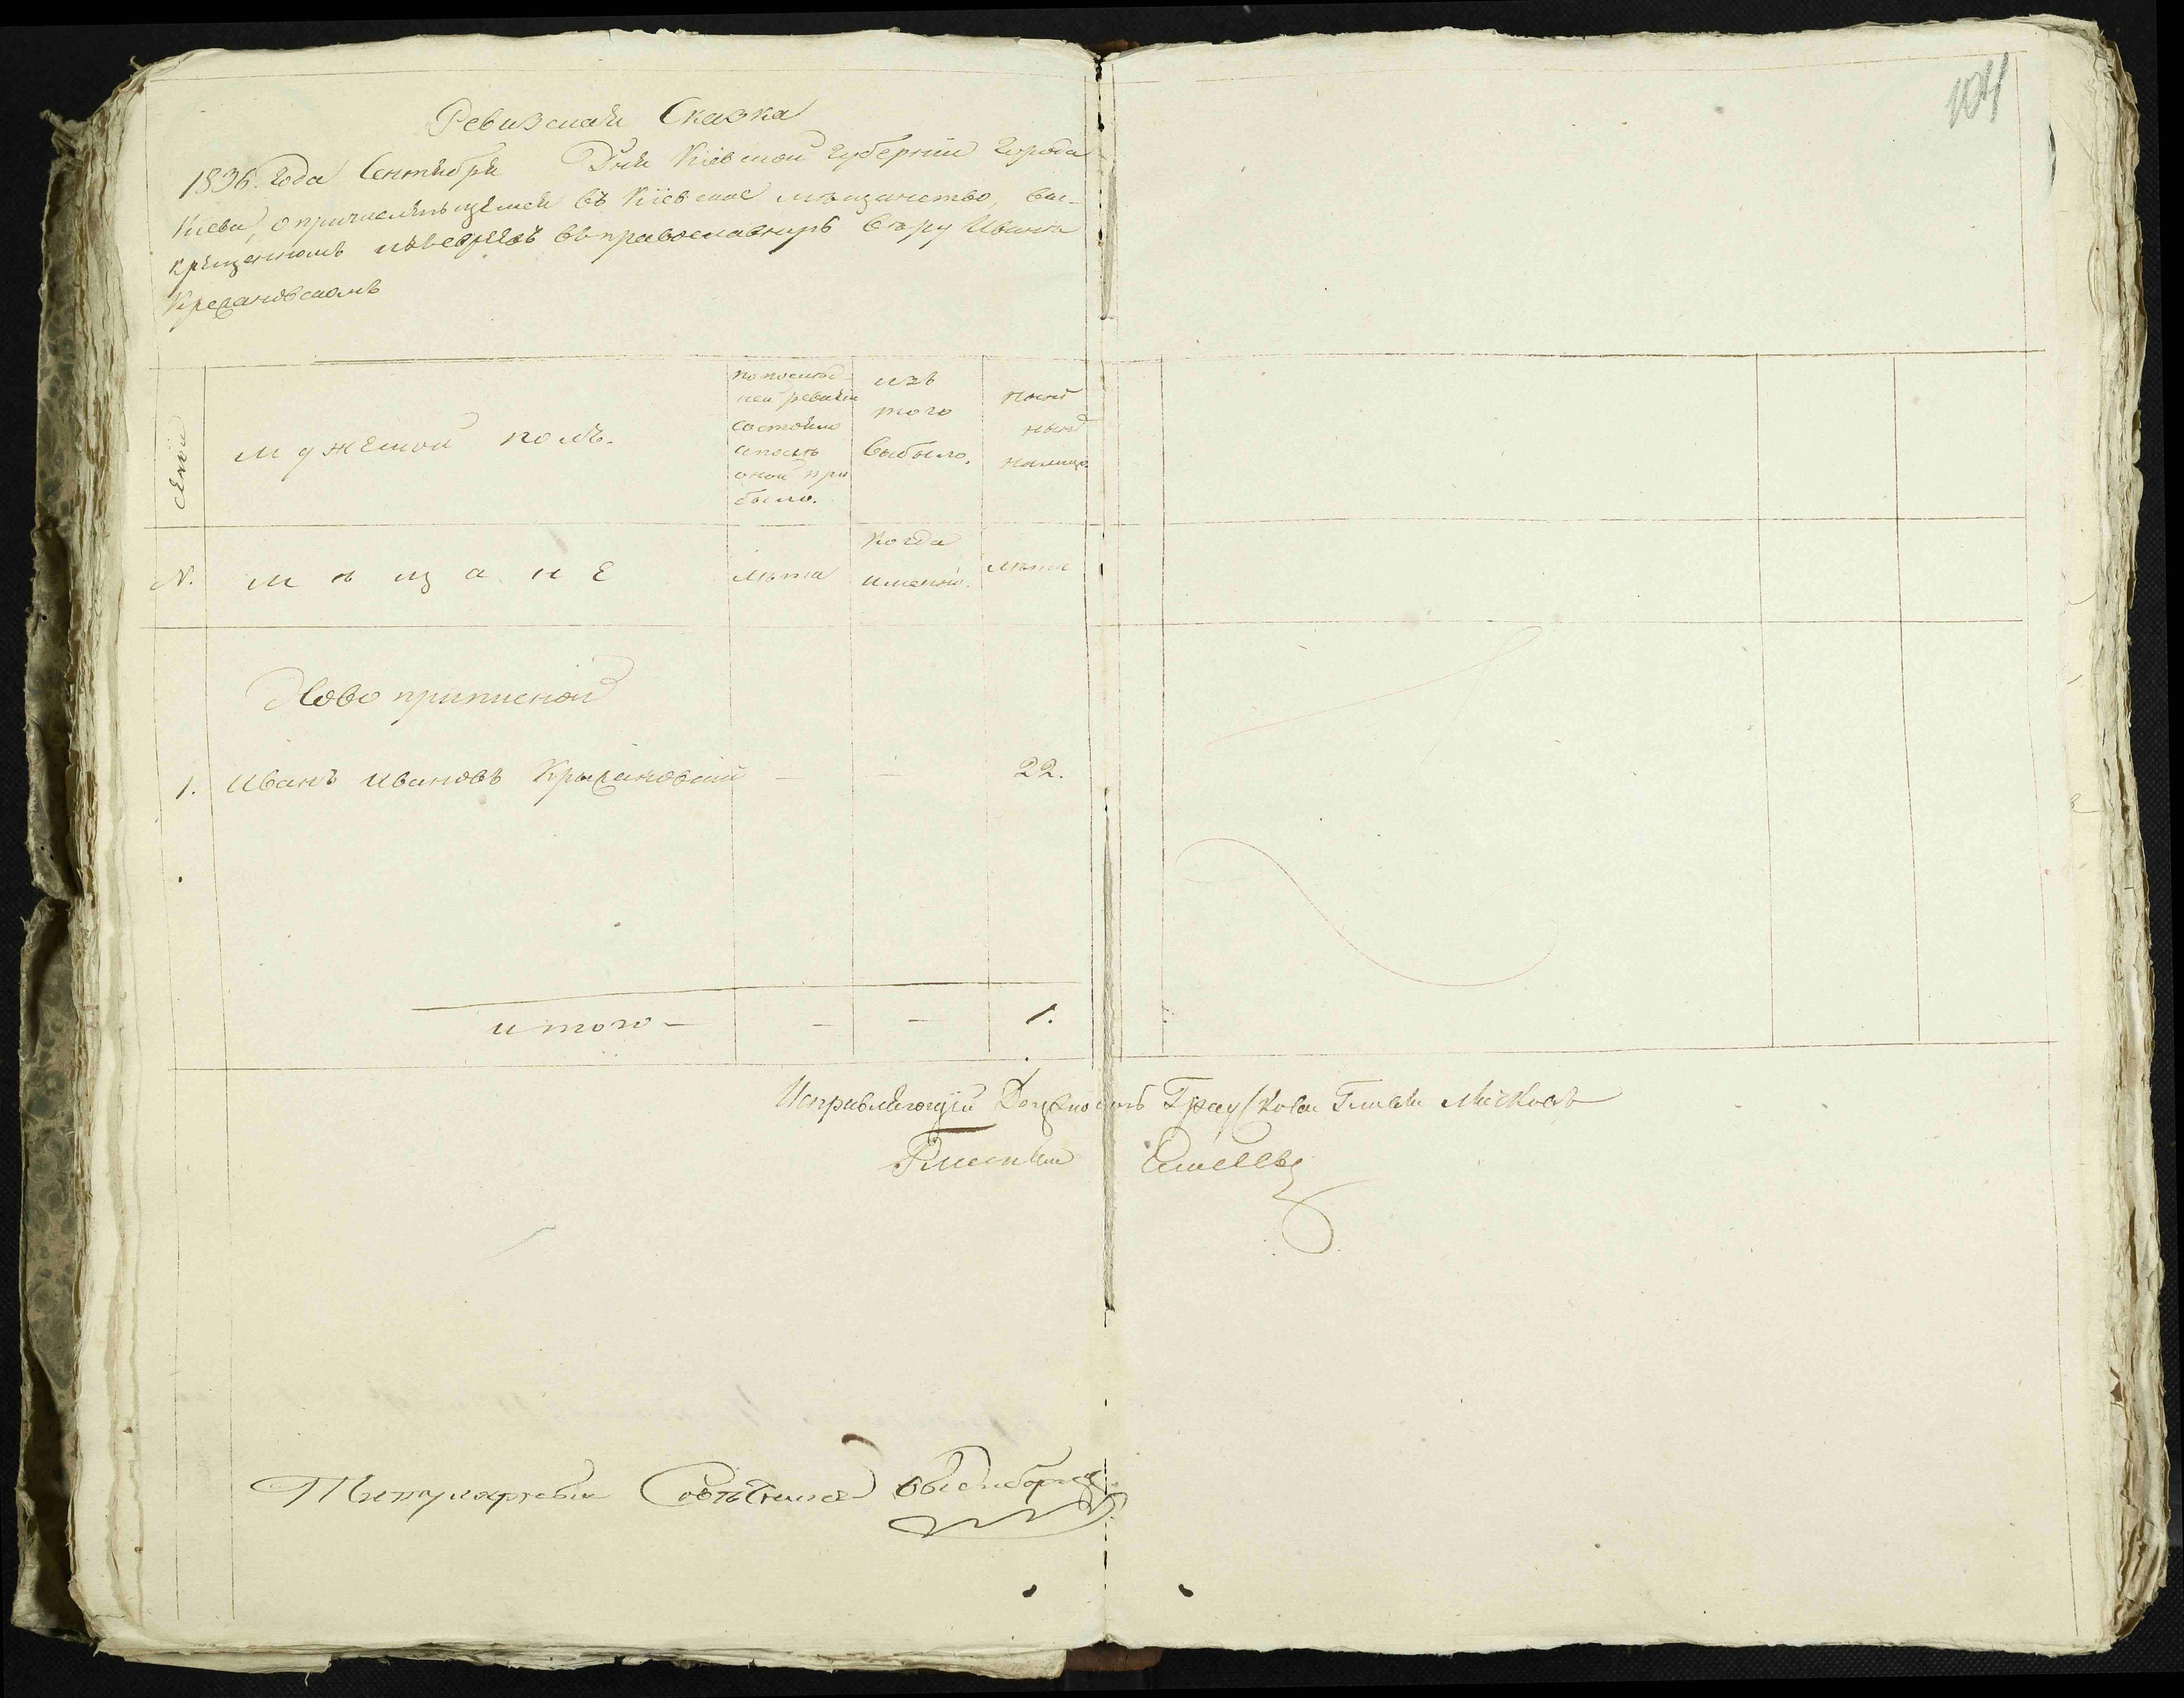 104
Ревизская Сказка
1836. Года Сентября Дня Кіевской Губерніи Города
Кіева, о причислившемся въ Кіевское мѣщанство, вос-
крещенномъ изъ евреевъ въ православную Вѣру Иванѣ
семьи
Мужеской полъ.
по послѣд-
ней ревизіи
состояло
и послѣ
оной при
было.
изъ
того
выбыло.
нынѣ
налицо
N.
Мѣщане
лѣта
когда
именно.
лѣта
Ново приписной
1. Иванъ Ивановъ Крыжановскій — — 22.
итого — — — 1.
Исправляющій Должность Градскаго Главы
Титулярный Совѣтникъ